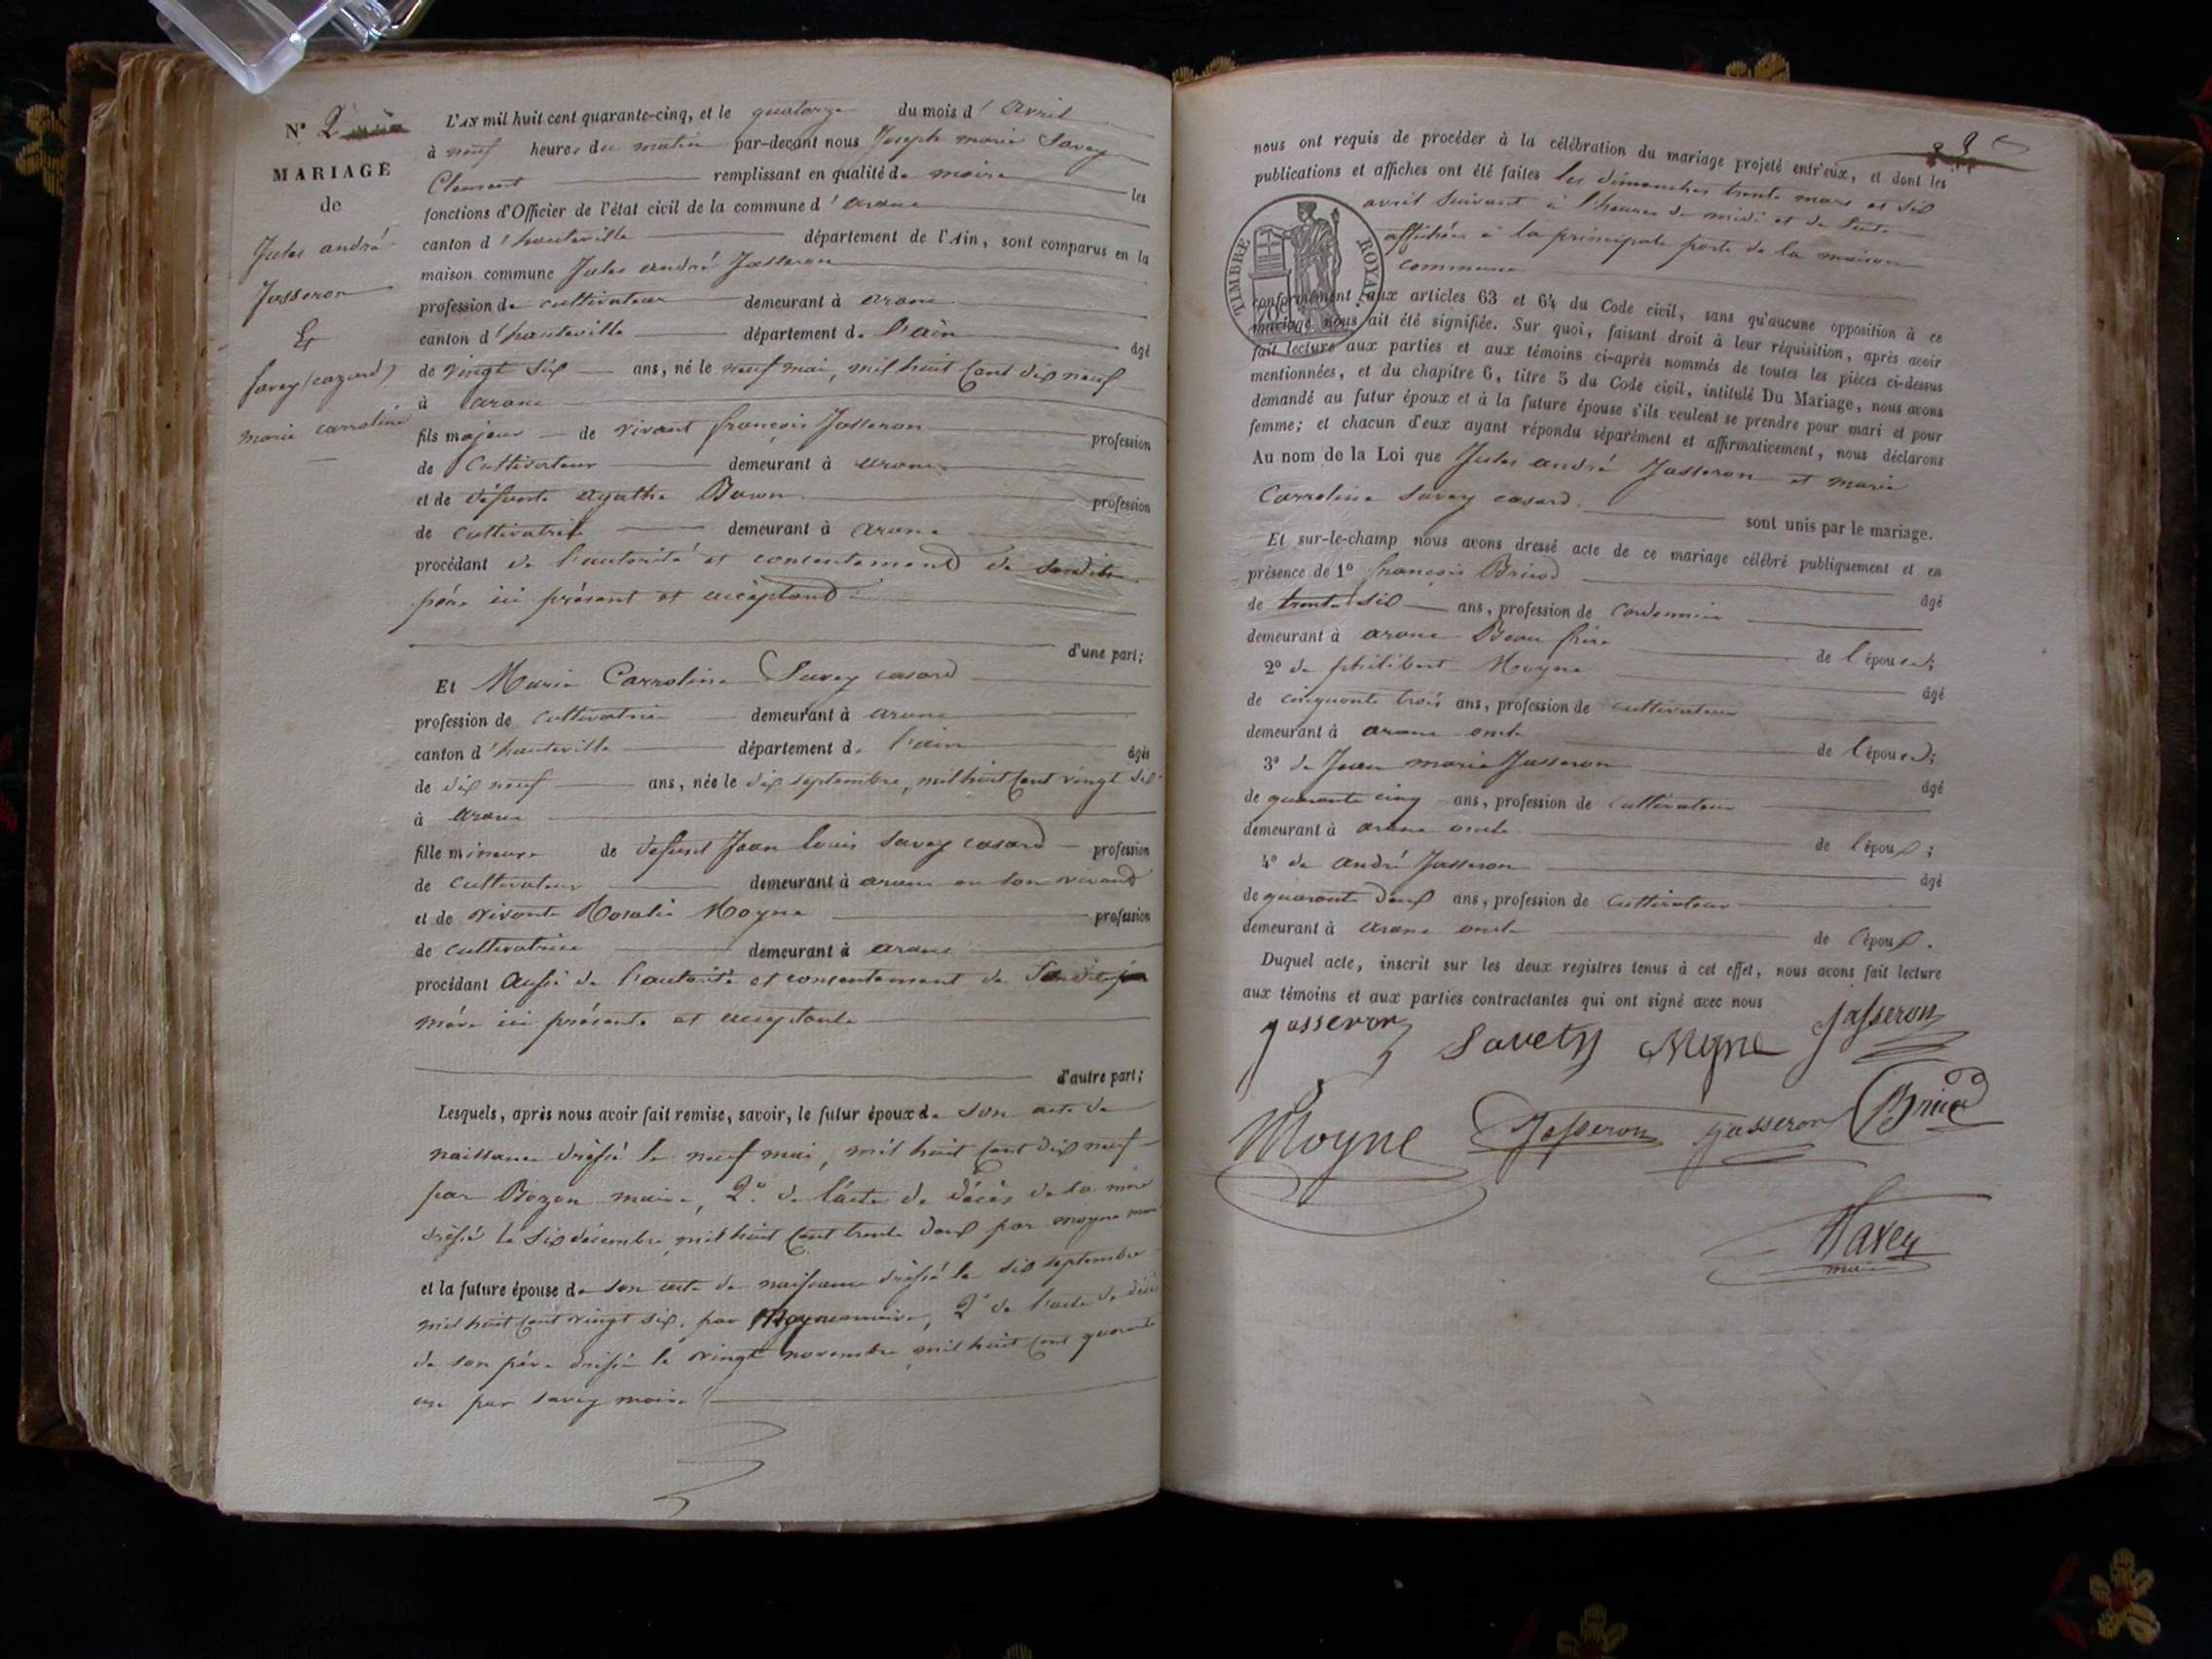 N° 2
MARIAGE
de
Jules andré
Josseron
Et
Savey (cazard)
marie carroline
L'AN mil huit cent quarante-cinq, et le quatorze du mois d'Avril
à neuf heures du matin par-devant nous Joseph marie Savey
Clement remplissant en qualité de maire les
fonctions d'Officier de l'état civil de la commune d'arane
canton d'hauteville département de l'Ain, sont comparus en la
maison commune Jules andré Josseron
profession de cultivateur demeurant à arane
canton d'hauteville département de l'ain âgé
de vingt six ans, né le neuf mai, mil huit cent dix neuf
à arane
fils majeur de vivant françois Josseron profession
de Cultivateur demeurant à arane
et de défunte agathe profession
de cultivatrice demeurant à arane
procédant de l'autorité et consentement de sondit
père ici présent et acceptand
d'une part;
Et Marie Carroline Savey casard
profession de cultivatrice demeurant à arane
canton d'hauteville département de l'ain âgée
de dix neuf ans, née le dix septembre, mil huit cent vingt six
à arane
fille mineure de defunt Jean louis Savey casard profession
de cultivateur demeurant à arane en son vivand
et de vivante Rosalie Moyne profession
de cultivatrice demeurant à arane
procédant aussi de l'autorité et consentement de sadite
mère ici présente et acceptante
d'autre part;
Lesquels, après nous avoir fait remise, savoir, le futur époux de son acte de
naissance dressé le neuf mai, mil huit cent dix neuf
par Bozon maire, 2° de l'acte de décès de sa mère
dressé le six décembre mil huit cent trente deux par moyne maire
et la future épouse de son acte de naissance dressé le dix septembre
mil huit cent vingt six, par Moyne maire, 2° de l'acte de décès
de son père dressé le vingt novembre mil huit cent quarante
un par savey maire
nous ont requis de procéder à la célébration du mariage projeté entr'eux, et dont les
publications et affiches ont été faites les dimanches trente mars et six
avril suivant à l'heure de midi et de suite
affichées à la principale porte de la maison
commune
TIMBRE ROYAL
70c
conformément aux articles 63 et 64 du Code civil, sans qu'aucune opposition à ce
mariage nous ait été signifiée. Sur quoi, faisant droit à leur réquisition, après avoir
fait lecture aux parties et aux témoins ci-après nommés de toutes les pièces ci-dessus
mentionnées, et du chapitre 6, titre 5 du Code civil, intitulé Du Mariage, nous avons
demandé au futur époux et à la future épouse s'ils veulent se prendre pour mari et pour
femme; et chacun d'eux ayant répondu séparément et affirmativement, nous déclarons
Au nom de la Loi que Jules andré Josseron et marie
Carroline Savey casard
sont unis par le mariage.
Et sur-le-champ nous avons dressé acte de ce mariage célébré publiquement et en
présence de 1° françois Briod âgé
de trente six ans, profession de Cordonnier
demeurant à arane Beau frère de l'épouse;
2° de philibert Moyne âgé
de cinquante trois ans, profession de cultivateur
demeurant à arane oncle de l'épouse;
3° de Jean marie Josseron âgé
de quarante cinq ans, profession de cultivateur
demeurant à arane oncle de l'époux;
4° de andré Josseron âgé
de quarante deux ans, profession de cultivateur
demeurant à arane oncle de l'époux.
Duquel acte, inscrit sur les deux registres tenus à cet effet, nous avons fait lecture
aux témoins et aux parties contractantes qui ont signé avec nous
josseron Savey Moyne Josseron
Moyne Josseron josseron Briod
Savey
maire